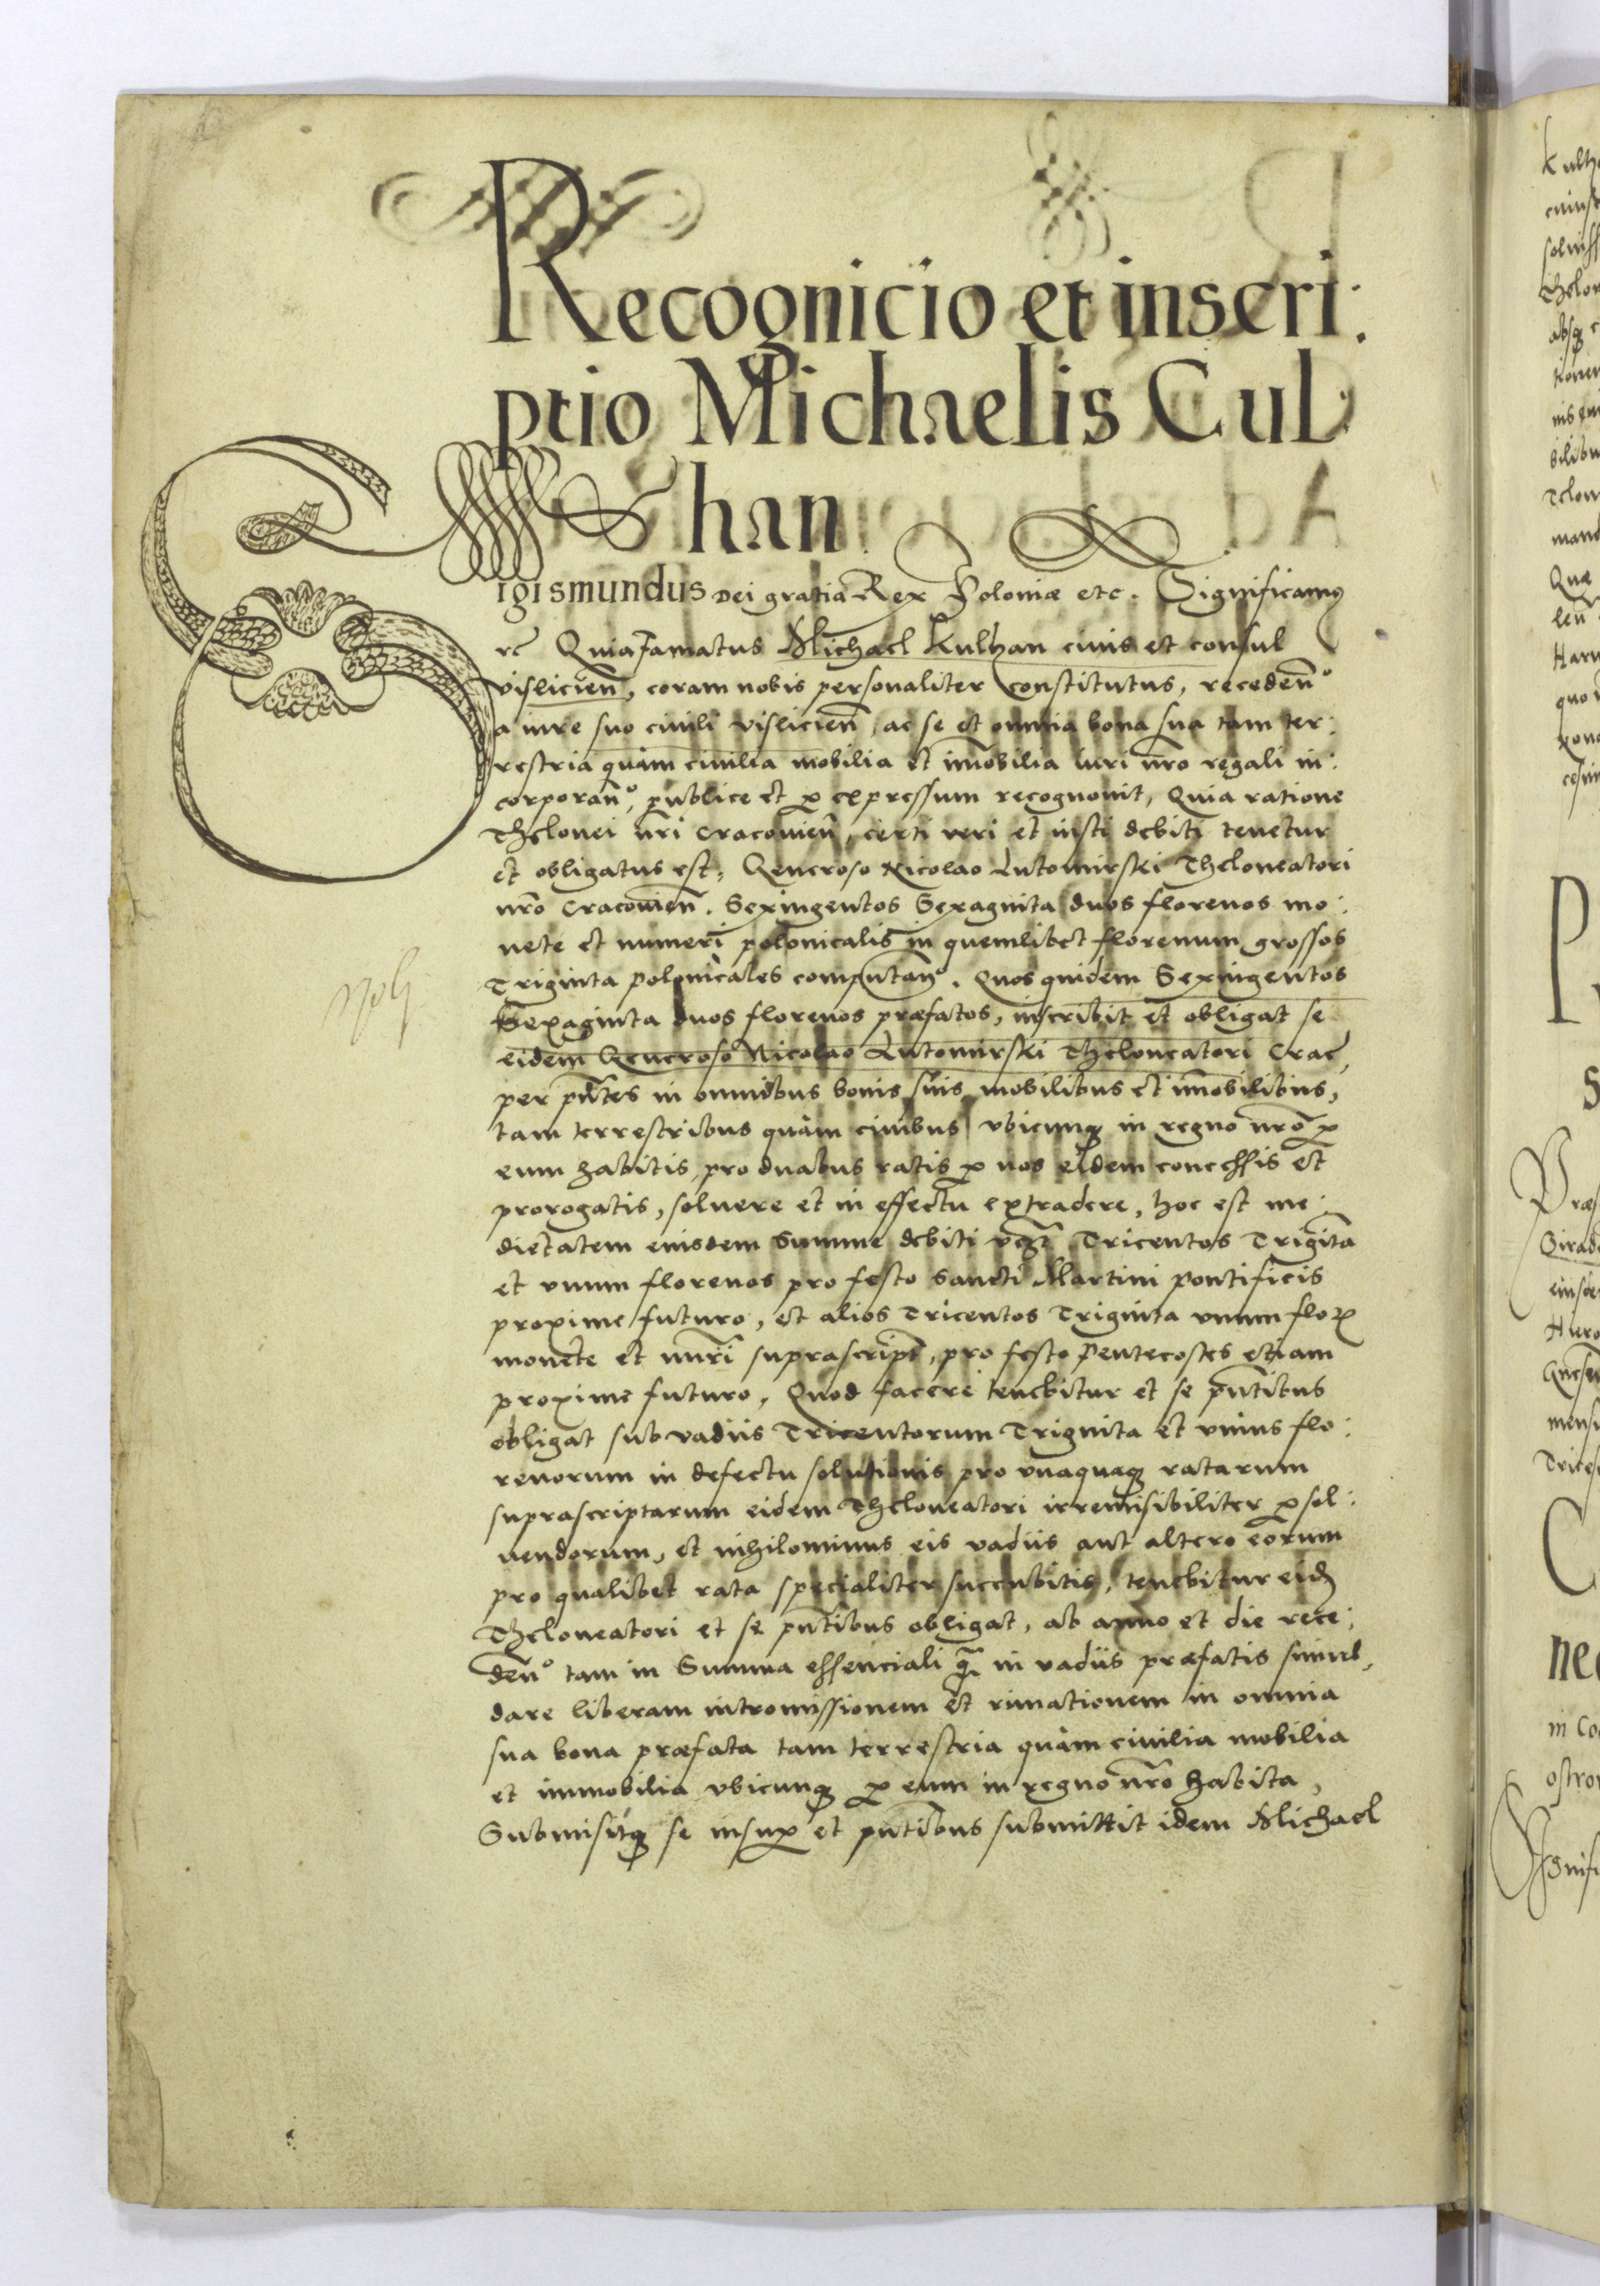 Recognicio et inscri:
ptio Michaelis Cul
han
Sigismundus Dei gratia Rex Poloniæ etc. Significamus
rc̃ Quia famatus Michael Kulhan ciuis et consul
visliciẽn, coram nobis personaliter constitutus, recedeñ°
a iure suo ciuili visliciẽn, ac se et omnia bona sua tam ter:
restria quàm ciuilia mobilia et im̃obilia iuri nr̃o regali in:
corporañ°, publice et p expressum recognouit, Quia ratione
Thelonei nr̃i Cracouieñ, certi veri et iusti debiti tenetur
et obligatus est, Generoso Nicolao Lutomirski Theloneatori
nr̃o Cracouieñ. Sexingentos Sexaginta duos florenos mo:
nete et numeri polonicalis in quemlibet florenum grossos
Triginta polonicales computañ°. Quos quidem Sexingentos
Sexaginta duos florenos præfatos, inscribit et obligat se
eidem Generoso Nicolao Lutomirski Theloneatori Crac̃
per pñtes in omnibus bonis suis mobilibus et im̃obilibus,
tam terrestribus quàm ciuibus vbicunq in regno nr̃o p
eum habitis, pro duabus ratis p nos eidem concessis et
prorogatis, soluere et in effectu extradere, hoc est me:
dietatem eiusdem Summe debiti vcz Tricentos Triginta
et vnum florenos pro festo Sancti Martini pontificis
proxime futuro, et alios Tricentos Triginta vnum flor
monete et nuri suprascript, pro festo Pentecostes etiam
proxime futuro, Quod facere tenebitur et se pñtibus
obligat sub vadiis Tricentorum Triginta et vnius flo:
renorum in defectu solutionis pro vnaquaq ratarum
suprascriptarum eidem Theloneatori irremisibiliter p sol:
uendorum, et nihilominus eis vadiis aut altero eorum
pro qualibet rata specialiter succubitis, tenebitur eid
Theloneatori et se pñtibus obligat, ab anno et die rece:
deñ° tam in Summa essenciali q̃ in vadiis præfatis simul,
dare liberam intromissionem et rimationem in omnia
sua bona præfata tam terrestria quàm ciuilia mobilia
et immobilia vbicunq p eum in regno nr̃o habita,
Submisitq se insup et pñtibus submittit idem Michael